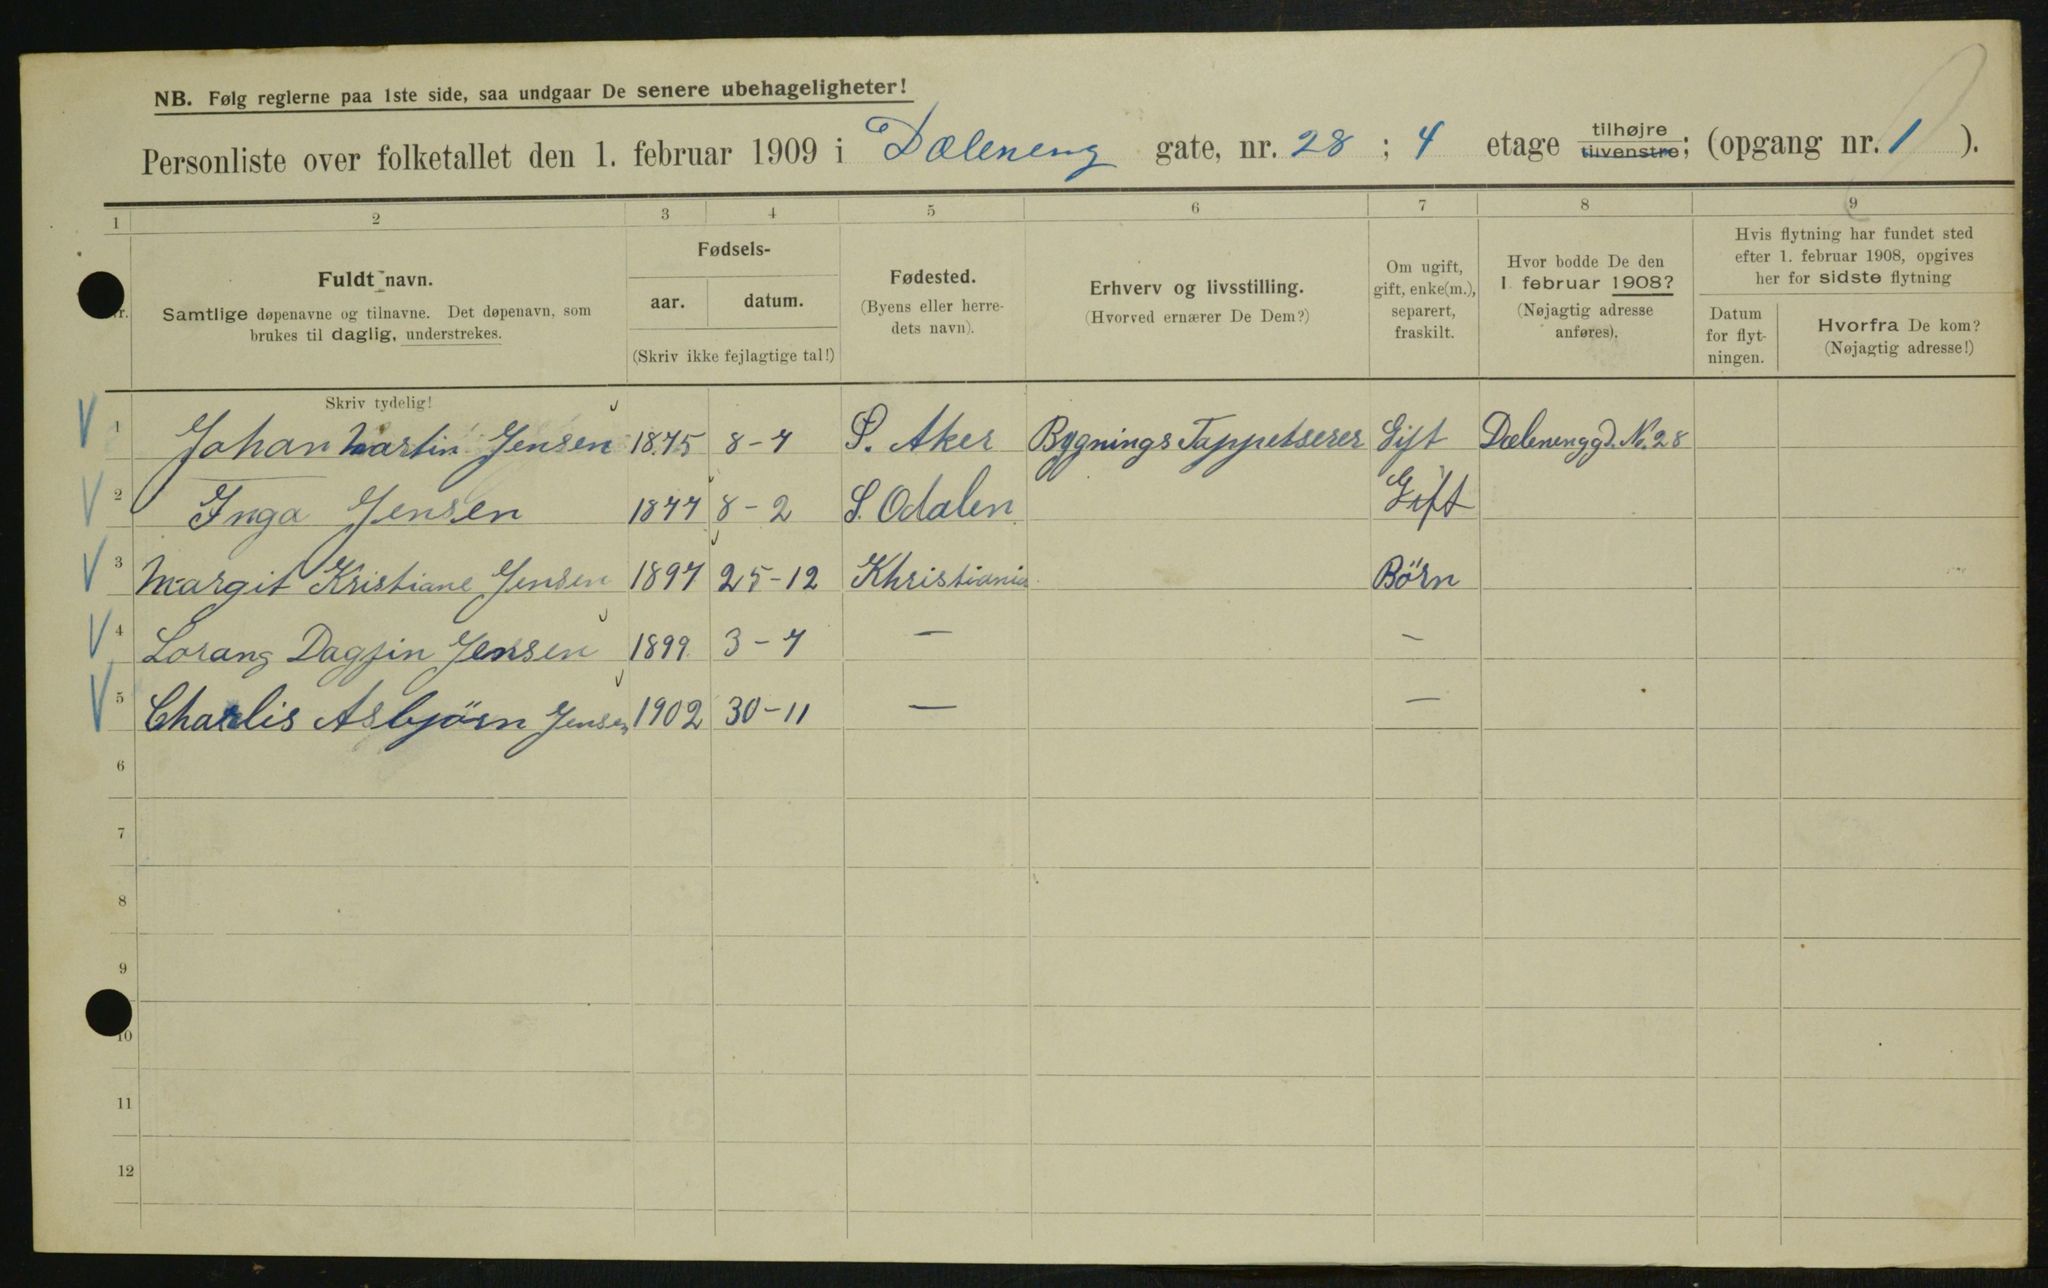 NB. Følg reglerne paa 1ste side, saa undgaar De senere ubehageligheter!
Personliste over folketallet den 1. februar 1909 i Dæleneng gate, nr. 28 ; 4 etage tilhøjre tilvenstre; (opgang nr. 1 ).
1 2 3 4 5 6 7 8 9
Fuldt navn.
Samtlige døpenavne og tilnavne. Det døpenavn, som
brukes til daglig, understrekes.
Fødsels-
aar. datum.
(Skriv ikke fejlagtige tal!)
Fødested.
(Byens eller herre-
dets navn).
Erhverv og livsstilling.
(Hvorved ernærer De Dem?)
Om ugift,
gift, enke(m.),
separert,
fraskilt.
Hvor bodde De den
1. februar 1908?
(Nøjagtig adresse
anføres).
Hvis flytning har fundet sted
efter 1. februar 1908, opgives
her for sidste flytning
Datum
for flyt-
ningen.
Hvorfra De kom?
(Nøjagtig adresse!)
Skriv tydelig!
1 Johan Martin Jensen 1875 8-7 S. Aker Bygnings Tappetserer Gift Dælenenggd. No. 28
2 Inga Jensen 1877 8-2 S. Odalen Gift
3 Margit Kristiane Jensen 1897 25-12 Khristiania Börn
4 Lorang Dagfin Jensen 1899 3-7 — —
5 Charlis Asbjörn Jensen 1902 30-11 — —
6
7
8
9
10
11
12